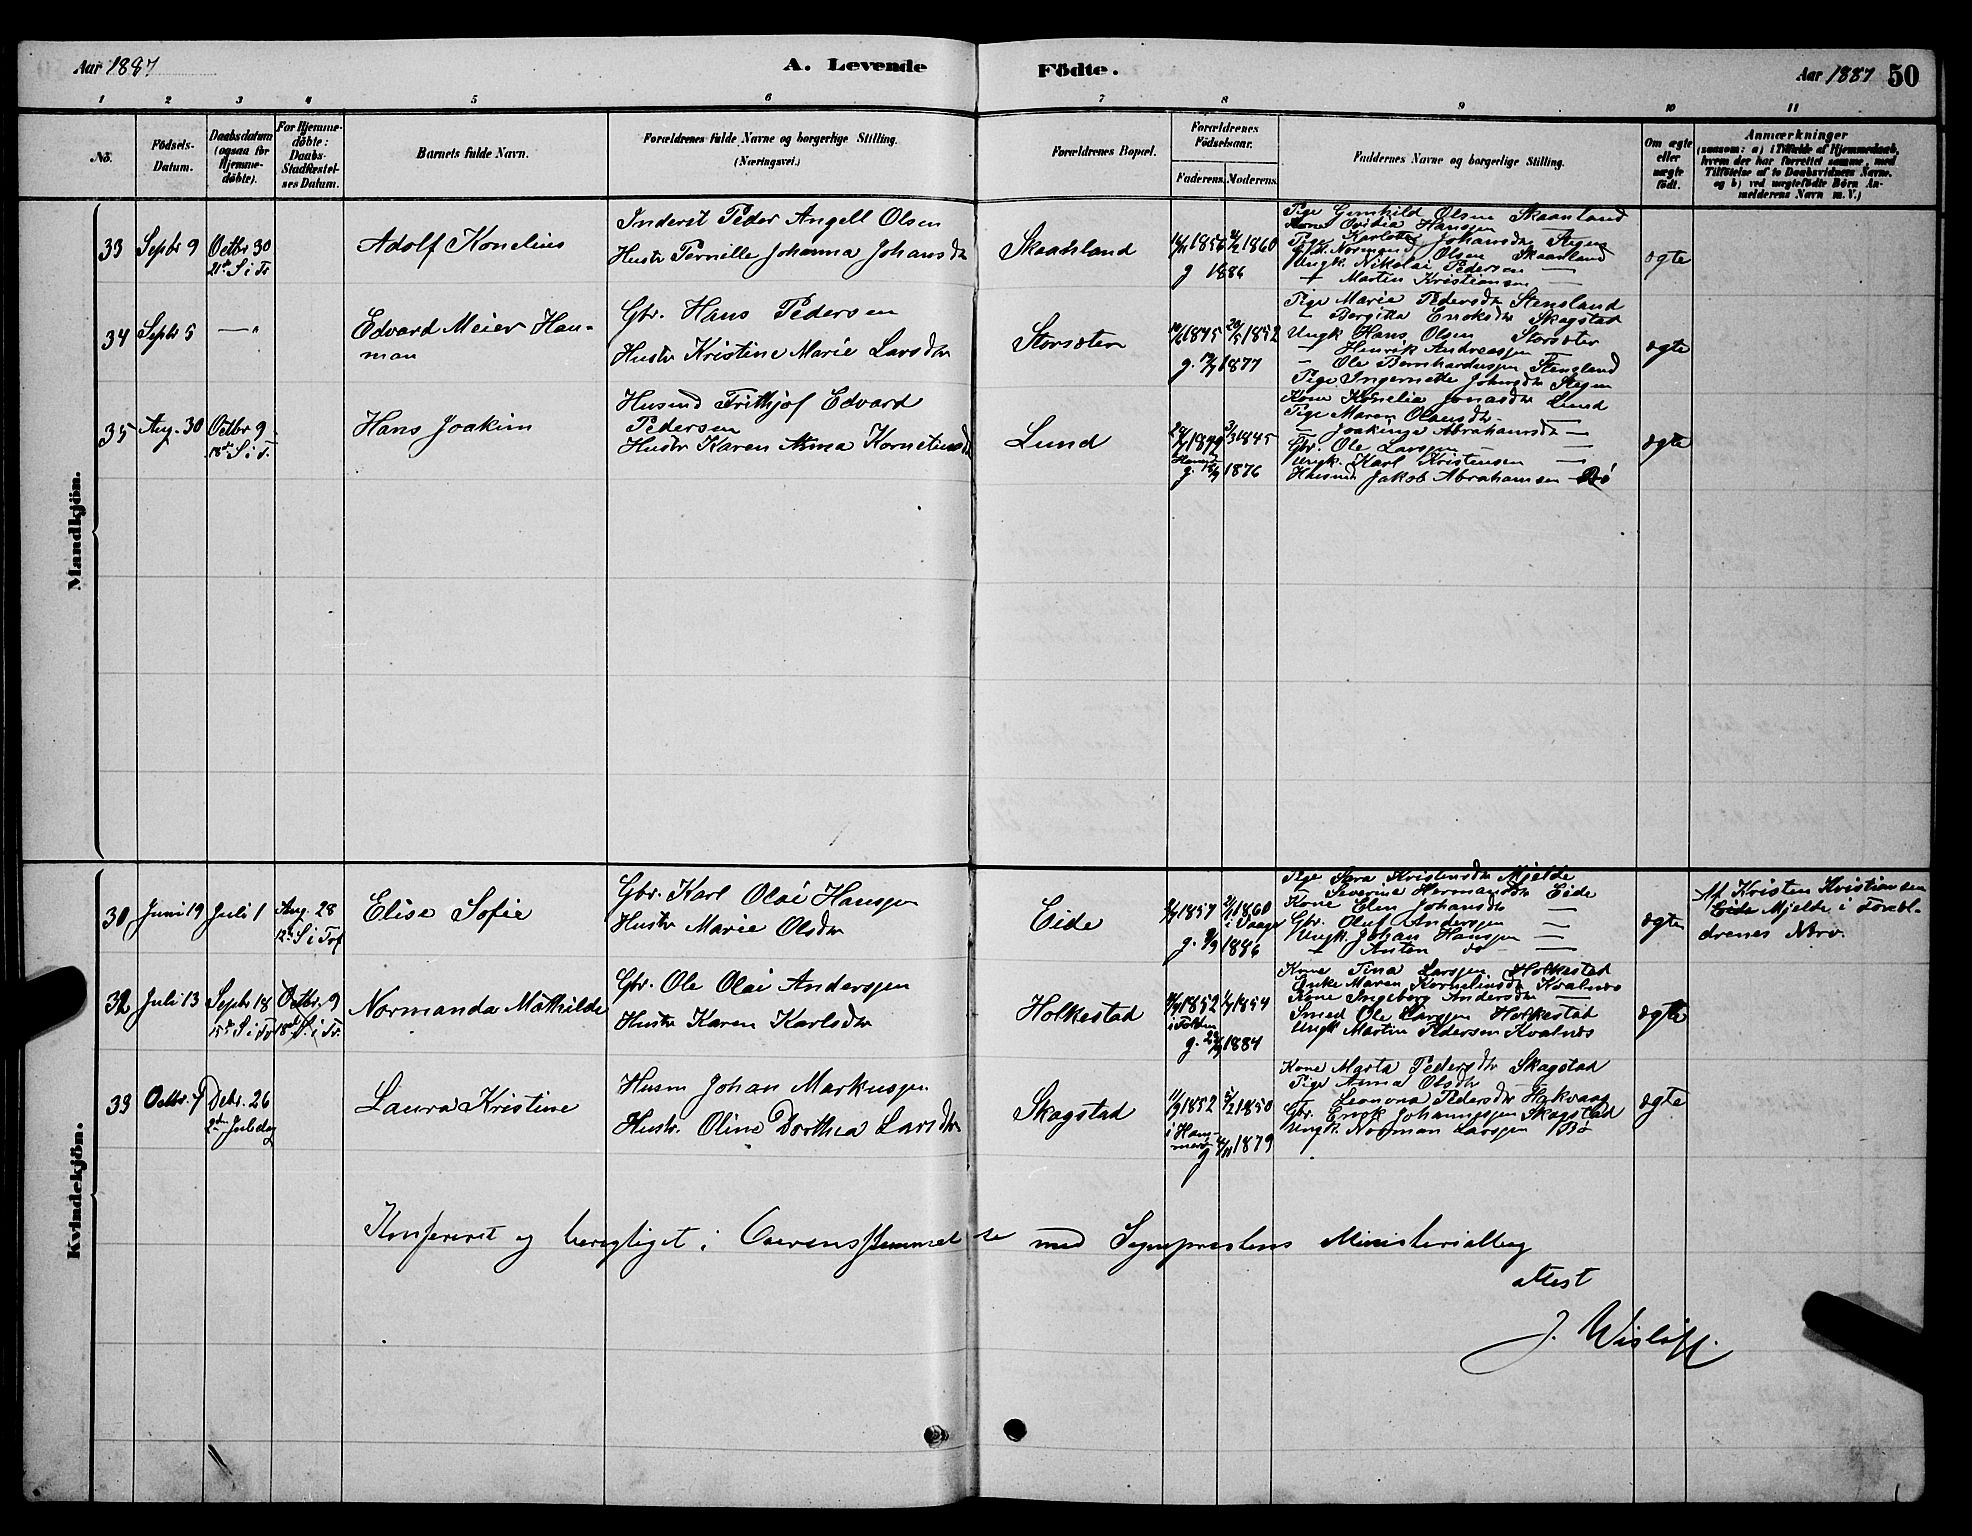 Aar 1887
A. Levende
Födte.
Aar 1887 50
1 2 3 4 5 6 7 8 9 10 11
No.
Födsels-
Datum.
Daabsdatum
(ogsaa for
Hjemme-
döbte).
For Hjemme-
döbte:
Daabs-
Stadfæstel-
ses Datum.
Barnets fulde Navn.
Forældrenes fulde Navne og borgerlige Stilling.
(Næringsvei.)
Forældrenes Bopæl.
Forældrenes
Födselsaar.
Faderens. Moderens.
Faddernes Navne og borgerlige Stilling.
Om ægte
eller
uægte
födt.
Anmærkninger
(saasom: a) i Tilfælde af Hjemmedaab,
hvem der har forrettet samme, med
Tilföielse af to Daabsvidners Navne.
og b) ved uægtefödte Börn An-
melderens Navn m. V.)
Mandkjön.
33 Septbr 9 Octbr 30
21de S i Tr
Adolf Kornelius
Inderst Peder Angell Olsen
Hustr Pernille Johanna Johansdtr
Skaansland
1856 1860
g 1886
Pige Gunhild Olsen Skaanland
Kone Ovidia Hansen
Pige Karlotte Johansdtr Stegen
Ungk. Normand Olsen Skaanland
Ungk. Nikolai Pedersen —
+ Martin Kristiansen —
ægte
34 Septbr 5 — "
Edvard Meier Han-
man
Gbr. Hans Pedersen
Hustr Kristine Marie Larsdtr
Storsæter
1845 1852
g. 1877
Pige Marie Pedersdtr Stensland
— Bergitta Ericksdtr Skagstad
Ungk Hans Olsen Storsæter
— Henrik Andreassen —
— Ole Bernhardussen Stensland
Pige Ingernette Johansdtr Stegen
ægte
35 Aug. 30 Octbr 9
18de S i T.
Hans Joakim
Husmd Frithjof Edvard
Pedersen
Hustr Karen Anna Korneliusdtr
Lund
1849 1845
g. 1876
Kone Kornelia Jonasdtr Lund
Pige Maren Olausdtr —
— Joakime Abrahamsdtr —
Gbr. Ole Larssen —
Ungk. Karl Kristensen —
Husmd Jakob Abrahamsen Bö
ægte
Kvindekjön.
30 Juni 19 Juli 1 Aug. 28
12te S i Trf
Elise Sofie
Gbr. Karl Olai Hanssen
Hustr Marie Olsdtr
Eide
1857 1860
i Vaagen
g. 1886
Pige Sara Kristensdtr Mjelde
— Severine Hermansdtr Eide
Kone Elen Johansdtr —
Gbr. Oluf Anderssen —
Ungk Johan Hanssen —
+ Anton do —
ægte
Af Kristen Kristiansen
Eide Mjelde i Foræl-
drenes Nærv.
32 Juli 13 Septbr 18
15de S i Tr
Octbr. 9
18de S. i Tr.
Normanda Mathilde
Gbr. Ole Olai Anderssen
Hustr Karen Karlsdtr
Holkestad
1852 1854
i Folden
g. 1884
Kone Tina Larssen Holkestad
Enke Maren Korneliusdtr Kvalnæs
Kone Ingeborg Andersdtr —
Smed Ole Larssen Holkestad
Ungk Martin Pedersen Kvalnæs
ægte
33 Octbr. 7 Debr. 26
2den Juledag
Laura Kristine
Husm Johan Markussen
Hustr. Oline Dorthea Larsdtr
Skagstad
1852 1850
i Ham-
merø
g 1879
Kone Marta Pedersdtr Skagstad
Pige Anna Olsdtr
— Leonora Pedersdtr Hakvaag
Gbr. Erick Johannessen Skagstad
Ungk. Norman Larssen Bö
ægte
Konfereret og berigtiget i Overensstemmelse med Sognepræstens Ministerialbog
attest
J. Wisløff.